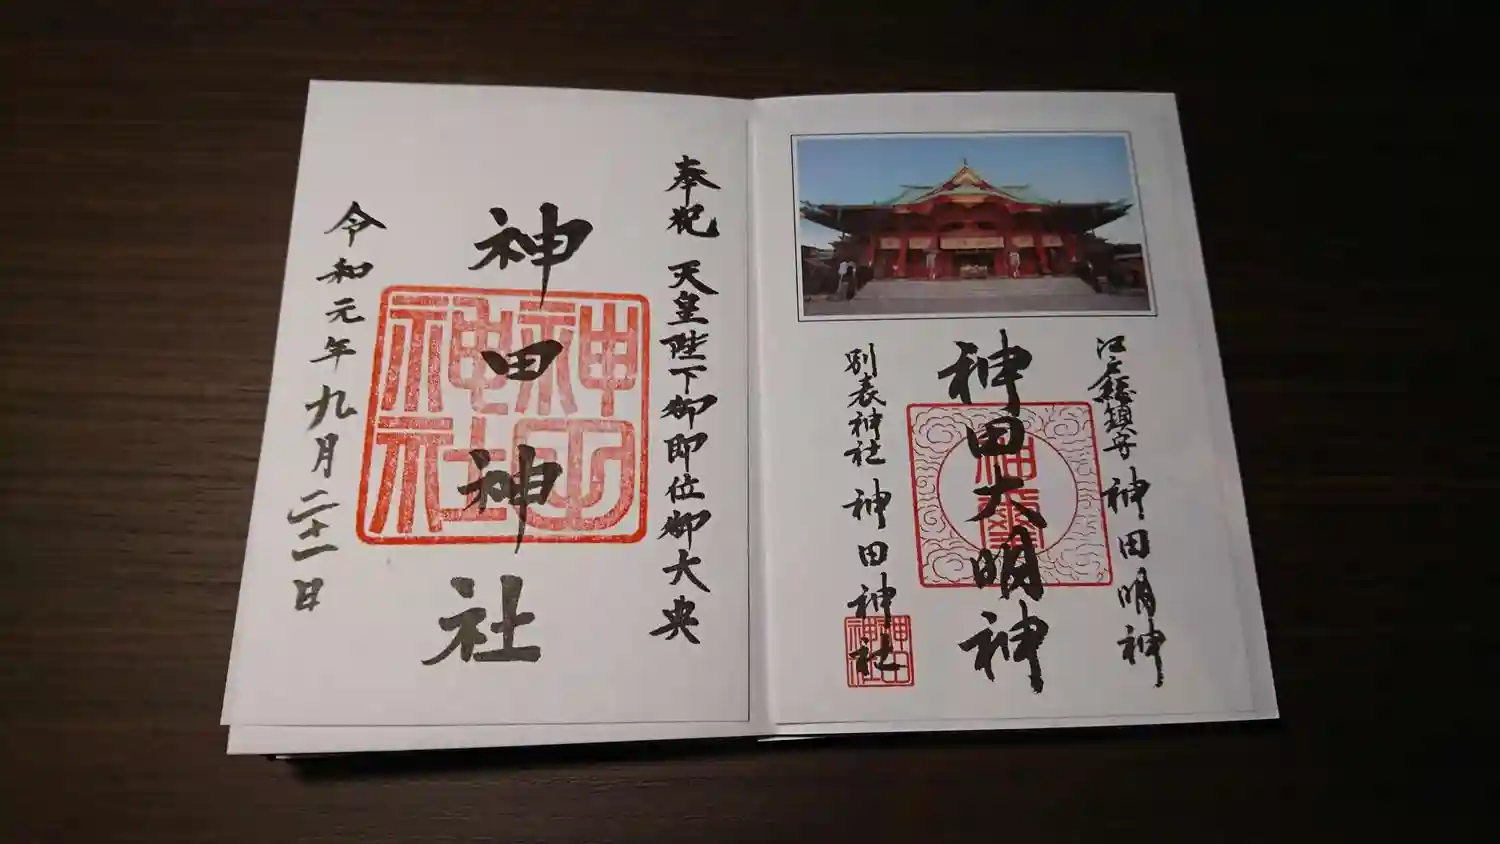 江戸總鎮守 神田明神
神田大明神
別表神社 神田神社
神田神社
奉祝 天皇陛下御即位御大典
神田神社
神田神社
令和元年九月二十一日